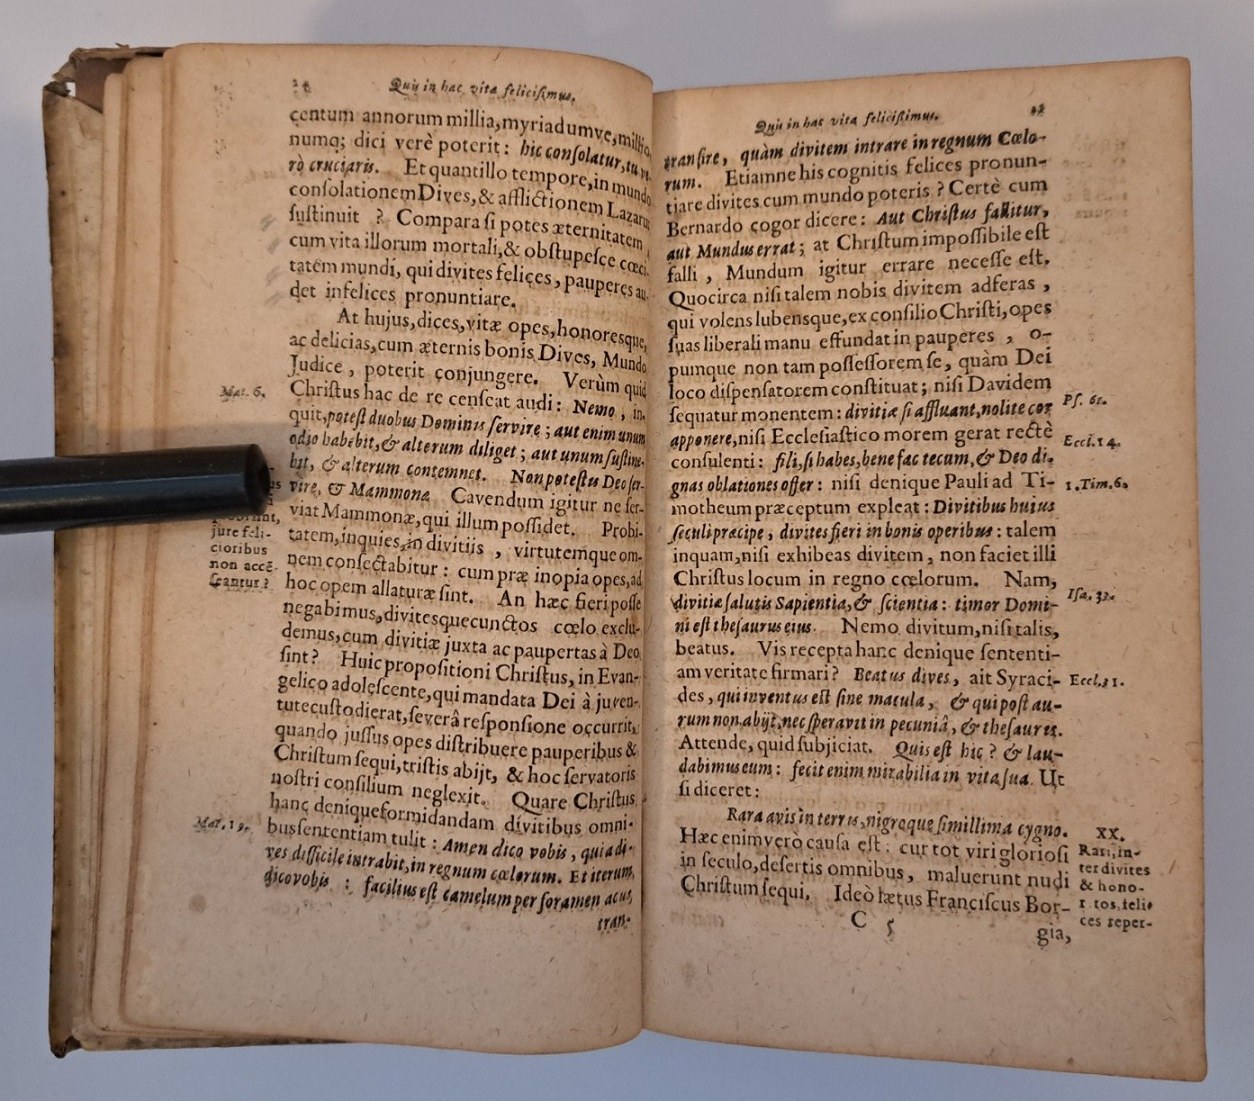 Quis in hac vita feliciſſimus.
centum annorum millia, myriadumve, millio
numq; dici verè poterit: hic conſolatur, tu ve-
rò cruciaris. Et quantillo tempore, in mundo
conſolationem Dives, & afflictionem Lazarus
ſuſtinuit ? Compara ſi potes æternitatem
cum vita illorum mortali, & obſtupeſce cœci-
tatem mundi, qui divites felices, pauperes au-
det infelices pronuntiare.
At hujus, dices, vitæ opes, honoresque,
ac delicias, cum æternis bonis Dives, Mundo
Judice , poterit conjungere. Verùm quid
Mat. 6.
Chriſtus hac de re cenſeat audi: Nemo , in-
quit, poteſt duobus Dominis ſervire ; aut enim unum
odio habebit, & alterum diliget ; aut unum ſuſtine-
bit, & alterum contemnet. Non poteſtis Deo ſer-
vire, & Mammonæ Cavendum igitur ne ſer-
viat Mammonæ, qui illum poſſidet. Probi-
jure feli-
cioribus
non accẽ-
ſeantur ?
tatem, inquies, in divitijs , virtutemque om-
nem conſectabitur : cum præ inopia opes, ad
hoc opem allaturæ ſint. An hæc fieri poſſe
negabimus, divitesque cunctos cœlo exclu-
demus, cum divitiæ juxta ac paupertas à Deo
ſint? Huic propoſitioni Chriſtus, in Evan-
gelico adoleſcente, qui mandata Dei à juven-
tute cuſtodierat, ſeverâ reſponſione occurrit,
quando juſſus opes diſtribuere pauperibus &
Chriſtum ſequi, triſtis abijt, & hoc ſervatoris
noſtri conſilium neglexit. Quare Chriſtus
Mat. 19.
hanc denique formidandam divitibus omni-
bus ſententiam tulit : Amen dico vobis , quia di-
ves difficile intrabit, in regnum cœlorum. Et iterum,
dico vobis : facilius eſt camelum per foramen acus,
tran-
Quis in hac vita feliciſſimus.
tranſire, quàm divitem intrare in regnum Cœlo-
rum. Etiamne his cognitis felices pronun-
tiare divites cum mundo poteris ? Certè cum
Bernardo cogor dicere : Aut Chriſtus fallitur,
aut Mundus errat ; at Chriſtum impoſſibile eſt
falli , Mundum igitur errare neceſſe eſt.
Quocirca niſi talem nobis divitem adferas ,
qui volens lubensque, ex conſilio Chriſti, opes
ſuas liberali manu effundat in pauperes , o-
pumque non tam poſſeſſorem ſe, quàm Dei
loco diſpenſatorem conſtituat ; niſi Davidem
Pſ. 61.
ſequatur monentem : divitiæ ſi affluant, nolite cor
apponere, niſi Eccleſiaſtico morem gerat rectè
Eccl. 14.
conſulenti : fili, ſi habes, bene fac tecum, & Deo di-
gnas oblationes offer : niſi denique Pauli ad Ti-
1. Tim. 6.
motheum præceptum expleat : Divitibus hujus
ſeculi præcipe , divites fieri in bonis operibus : talem
inquam, niſi exhibeas divitem , non faciet illi
Chriſtus locum in regno cœlorum. Nam,
divitiæ ſalutis Sapientia, & ſcientia : timor Domi-
Iſa. 33.
ni eſt theſaurus eius. Nemo divitum, niſi talis,
beatus. Vis recepta hanc denique ſententi-
am veritate firmari ? Beatus dives , ait Syraci-
Eccl. 31.
des , qui inventus eſt ſine macula, & qui poſt au-
rum non abijt, nec ſperavit in pecuniâ, & theſauris.
Attende, quid ſubjiciat. Quis eſt hic ? & lau-
dabimus eum : fecit enim mirabilia in vita ſua. Ut
ſi diceret :
Rara avis in terris, nigroque ſimillima cygno.
XX.
Rari, in-
ter divites
& hono-
r tos, feli-
ces reper-
Hæc enimverò cauſa eſt : cur tot viri glorioſi
in ſeculo, deſertis omnibus , maluerunt nudi
Chriſtum ſequi. Ideò lætus Franciſcus Bor-
C 5
gia,